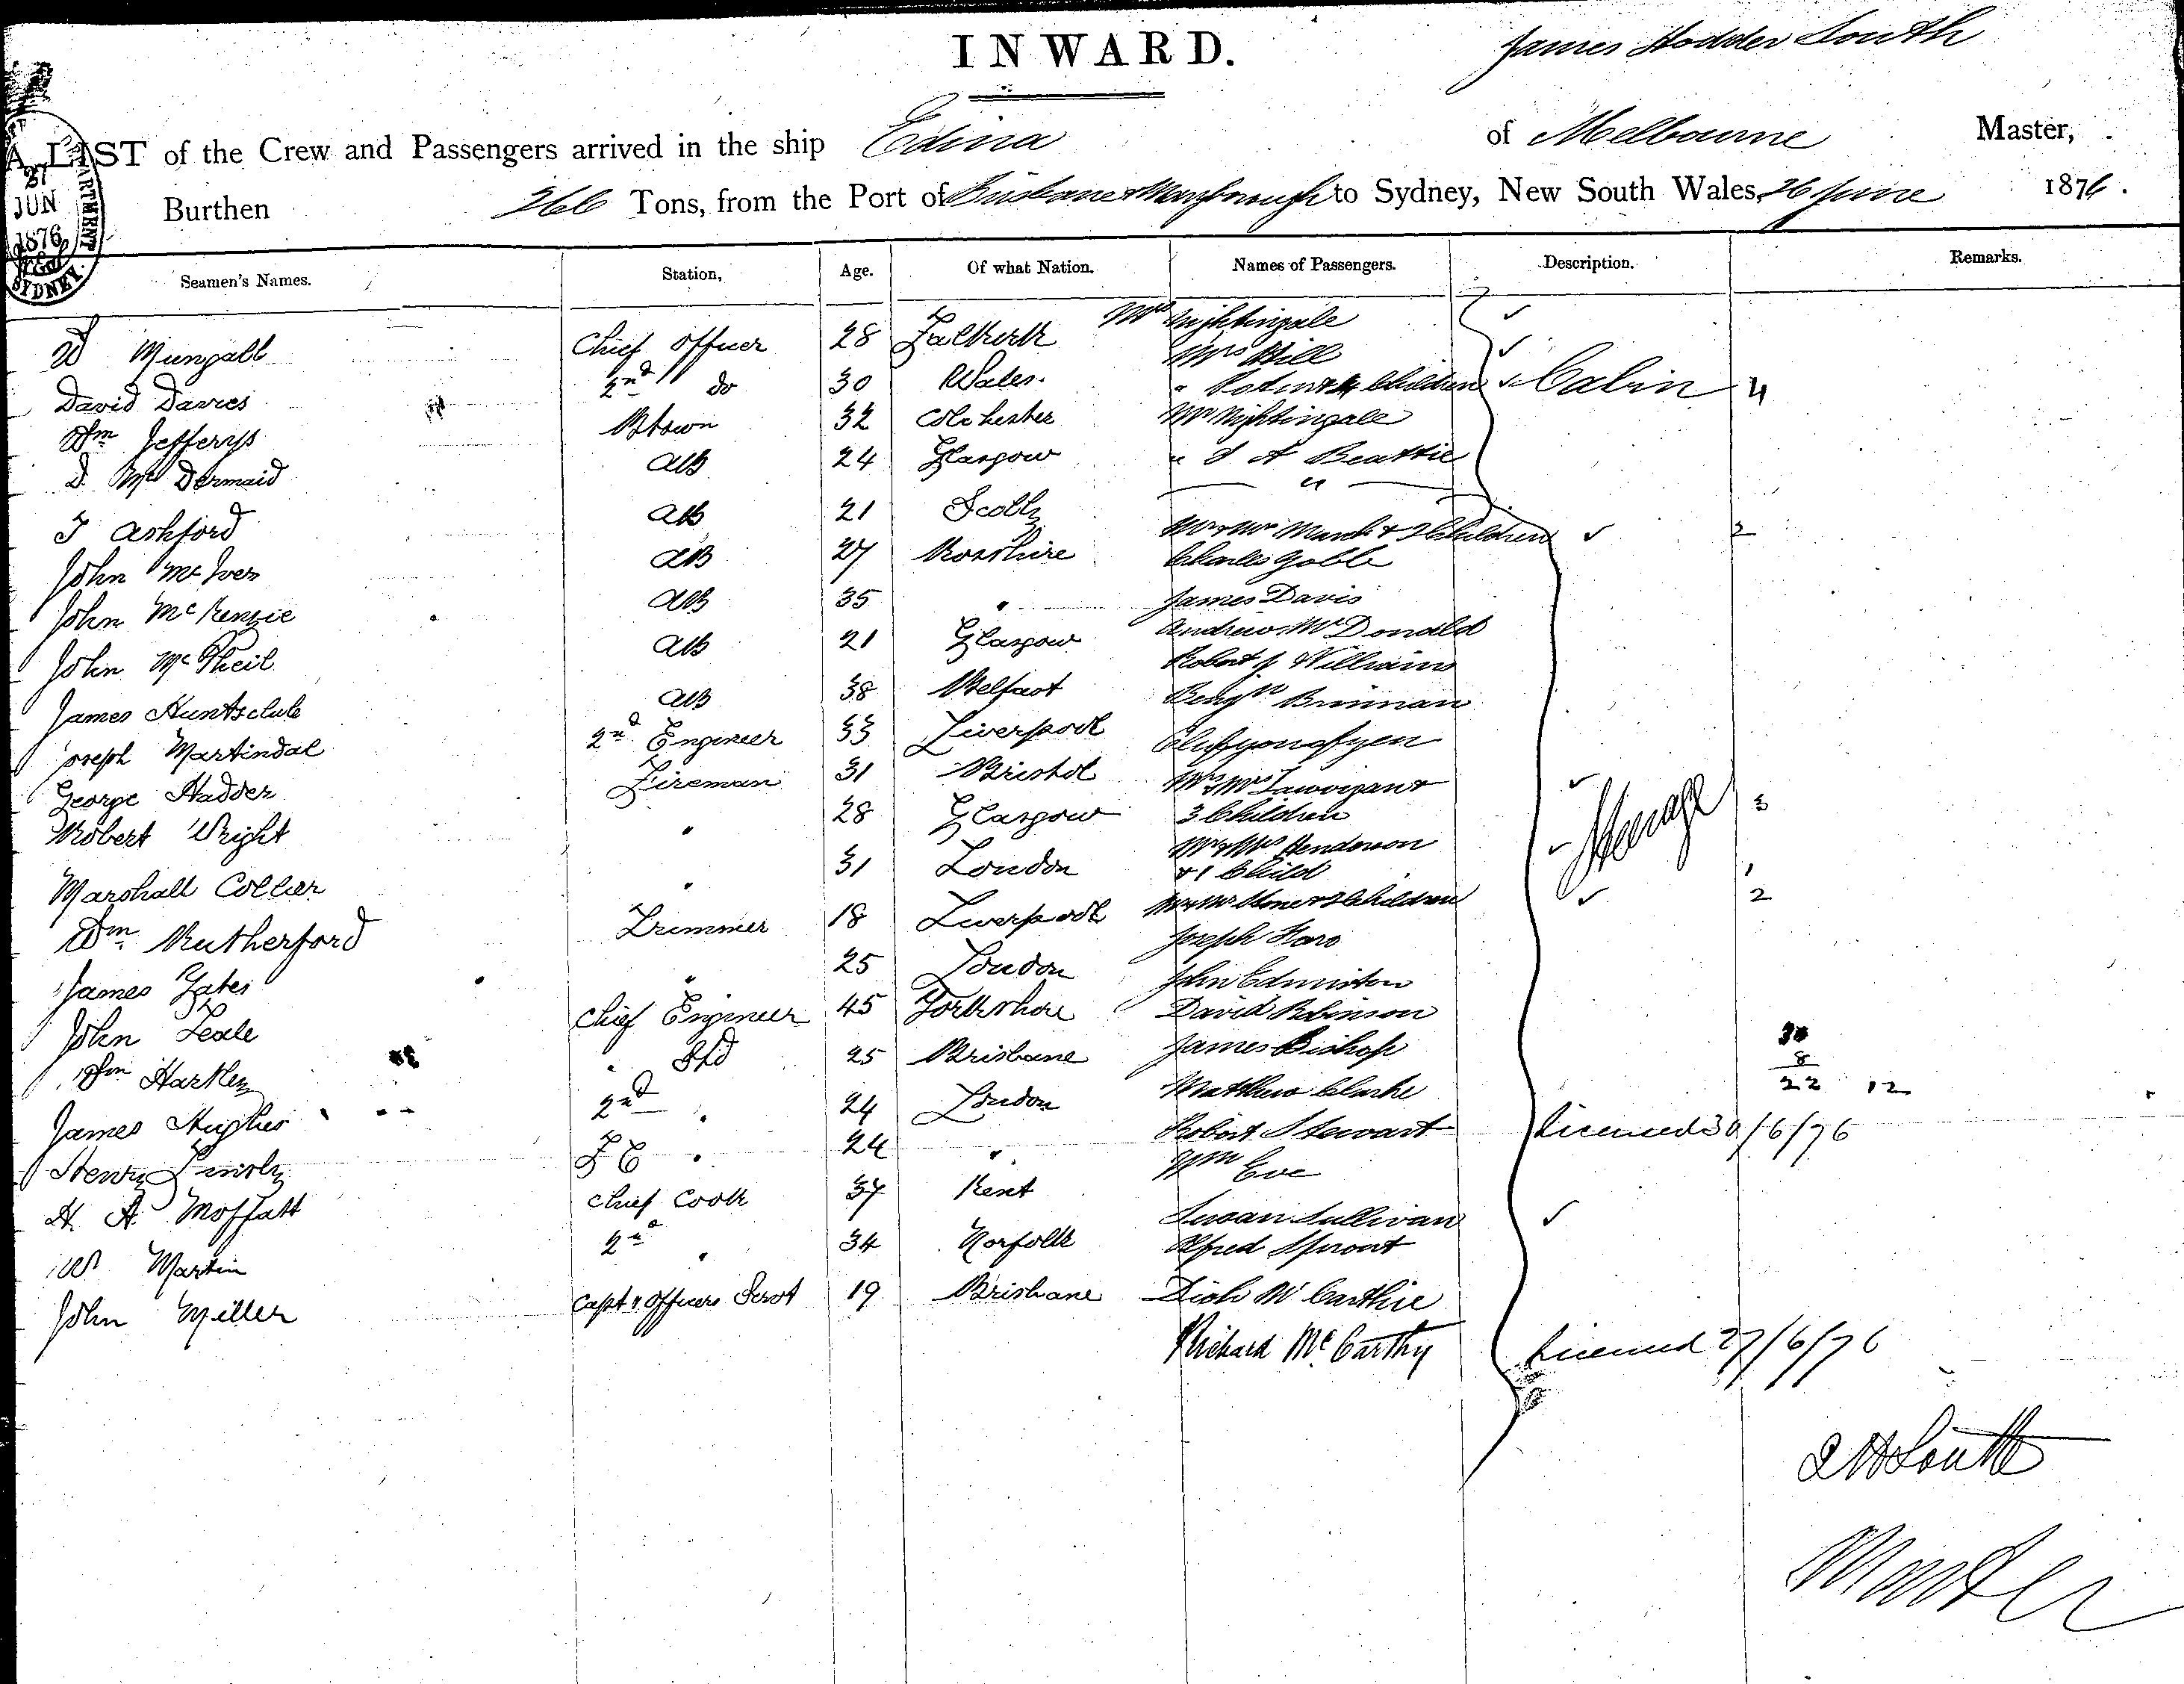 INWARD.
James Hodder South
A LIST of the Crew and Passengers arrived in the ship Edina of Melbourne Master,
Burthen 266 Tons, from the Port of Brisbane & Maryborough to Sydney, New South Wales, 26 June 1876.
27
JUN
1876
SYDNEY
Seamen's Names. Station, Age. Of what Nation. Names of Passengers. Description. Remarks.
W Mungall Chief Officer 28 Falkirk Mrs Nightingale
Mrs Hill
David Davies 2nd do 30 Wales. 4 Children Cabin 4
Wm Jefferys Btswn 32 Colchester Mr Nightingale
D. McDermaid AB 24 Glasgow " J A Beattie
J Ashford AB 21 Scotld Mr & Mrs March & 2 Children 2
John McIver AB 27 Rosshire Charles Goble
John McKenzie AB 35 " James Davis
Andrew McDonald
John McPheil AB 21 Glasgow Robert J Williams
James Huntschule AB 38 Belfast Benjn Brinnan
Joseph Martindal 2nd Engineer 33 Liverpool
George Hadder Fireman 31 Bristol Mr & Mrs
Robert Wright " 28 Glasgow 3 Children Steerage 3
Mr & Mrs Henderson
Marshall Collier " 31 London & 1 Child 1
Wm Rutherford Trimmer 18 Liverpool Mr & Mrs & 2 Children 2
Joseph
James Yates " 25 London John Edmiston
John Leale Chief Engineer 45 Yorkshire David Robinson
Wm Hartley " Std 25 Brisbane James Bishop
30
8
22 12
James Hughes 2nd " 24 London Matthew Clarke
Henry F C " 24 " Robert Stewart Licensed 30/6/76
Wm Eve
H A Moffatt Chief Cook 37 Kent
Susan Sullivan
W Martin 2nd " 34 Norfolk Alfred Sprout
John Miller Capt & Officers Servt 19 Brisbane Dick McCarthie
Richard McCarthy Licensed 27/6/76
J H South
Master